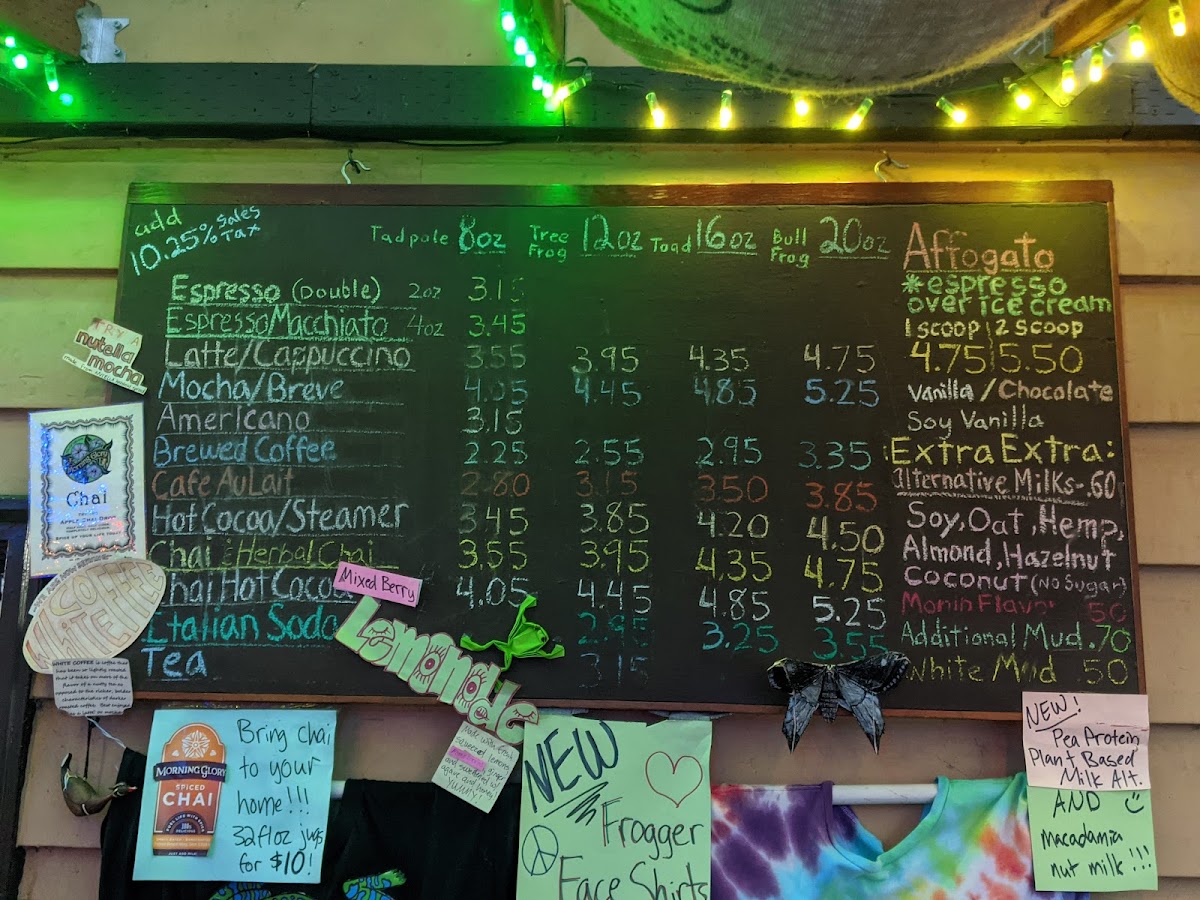 add
10.25% Sales
Tax
Tadpole 8oz Tree Frog 12oz Toad 16oz Bull Frog 20oz
Espresso (Double) 2oz 3.15
Espresso Macchiato 4oz 3.45
Latte/Cappuccino 3.55 3.95 4.35 4.75
Mocha/Breve 4.05 4.45 4.85 5.25
Americano 3.15
Brewed Coffee 2.25 2.55 2.95 3.35
Cafe Au Lait 2.80 3.15 3.50 3.85
Hot Cocoa/Steamer 3.45 3.85 4.20 4.50
Chai Herbal Chai 3.55 3.95 4.35 4.75
Chai Hot Cocoa 4.05 4.45 4.85 5.25
Italian Soda 2.95 3.25 3.55
Tea 3.15
Affogato
*espresso
over ice cream
1 scoop 2 scoop
4.75 5.50
Vanilla/Chocolate
Soy Vanilla
Extra Extra:
alternative Milks-.60
Soy, Oat, Hemp,
Almond, Hazelnut
Coconut (No Sugar)
Monin Flavor .50
Additional Mud .70
White Mud .50
TRY A
nutella
mocha
Chai
COFFEE
WHITE
WHITE COFFEE
Mixed Berry
Lemonade
MORNING GLORY
SPICED
CHAI
Bring chai
to your
home!!!
32floz jugs
for $10!
NEW
Frogger
Face Shirts
NEW!
Pea Protein
Plant Based
Milk Alt.
AND
macadamia
nut milk!!!